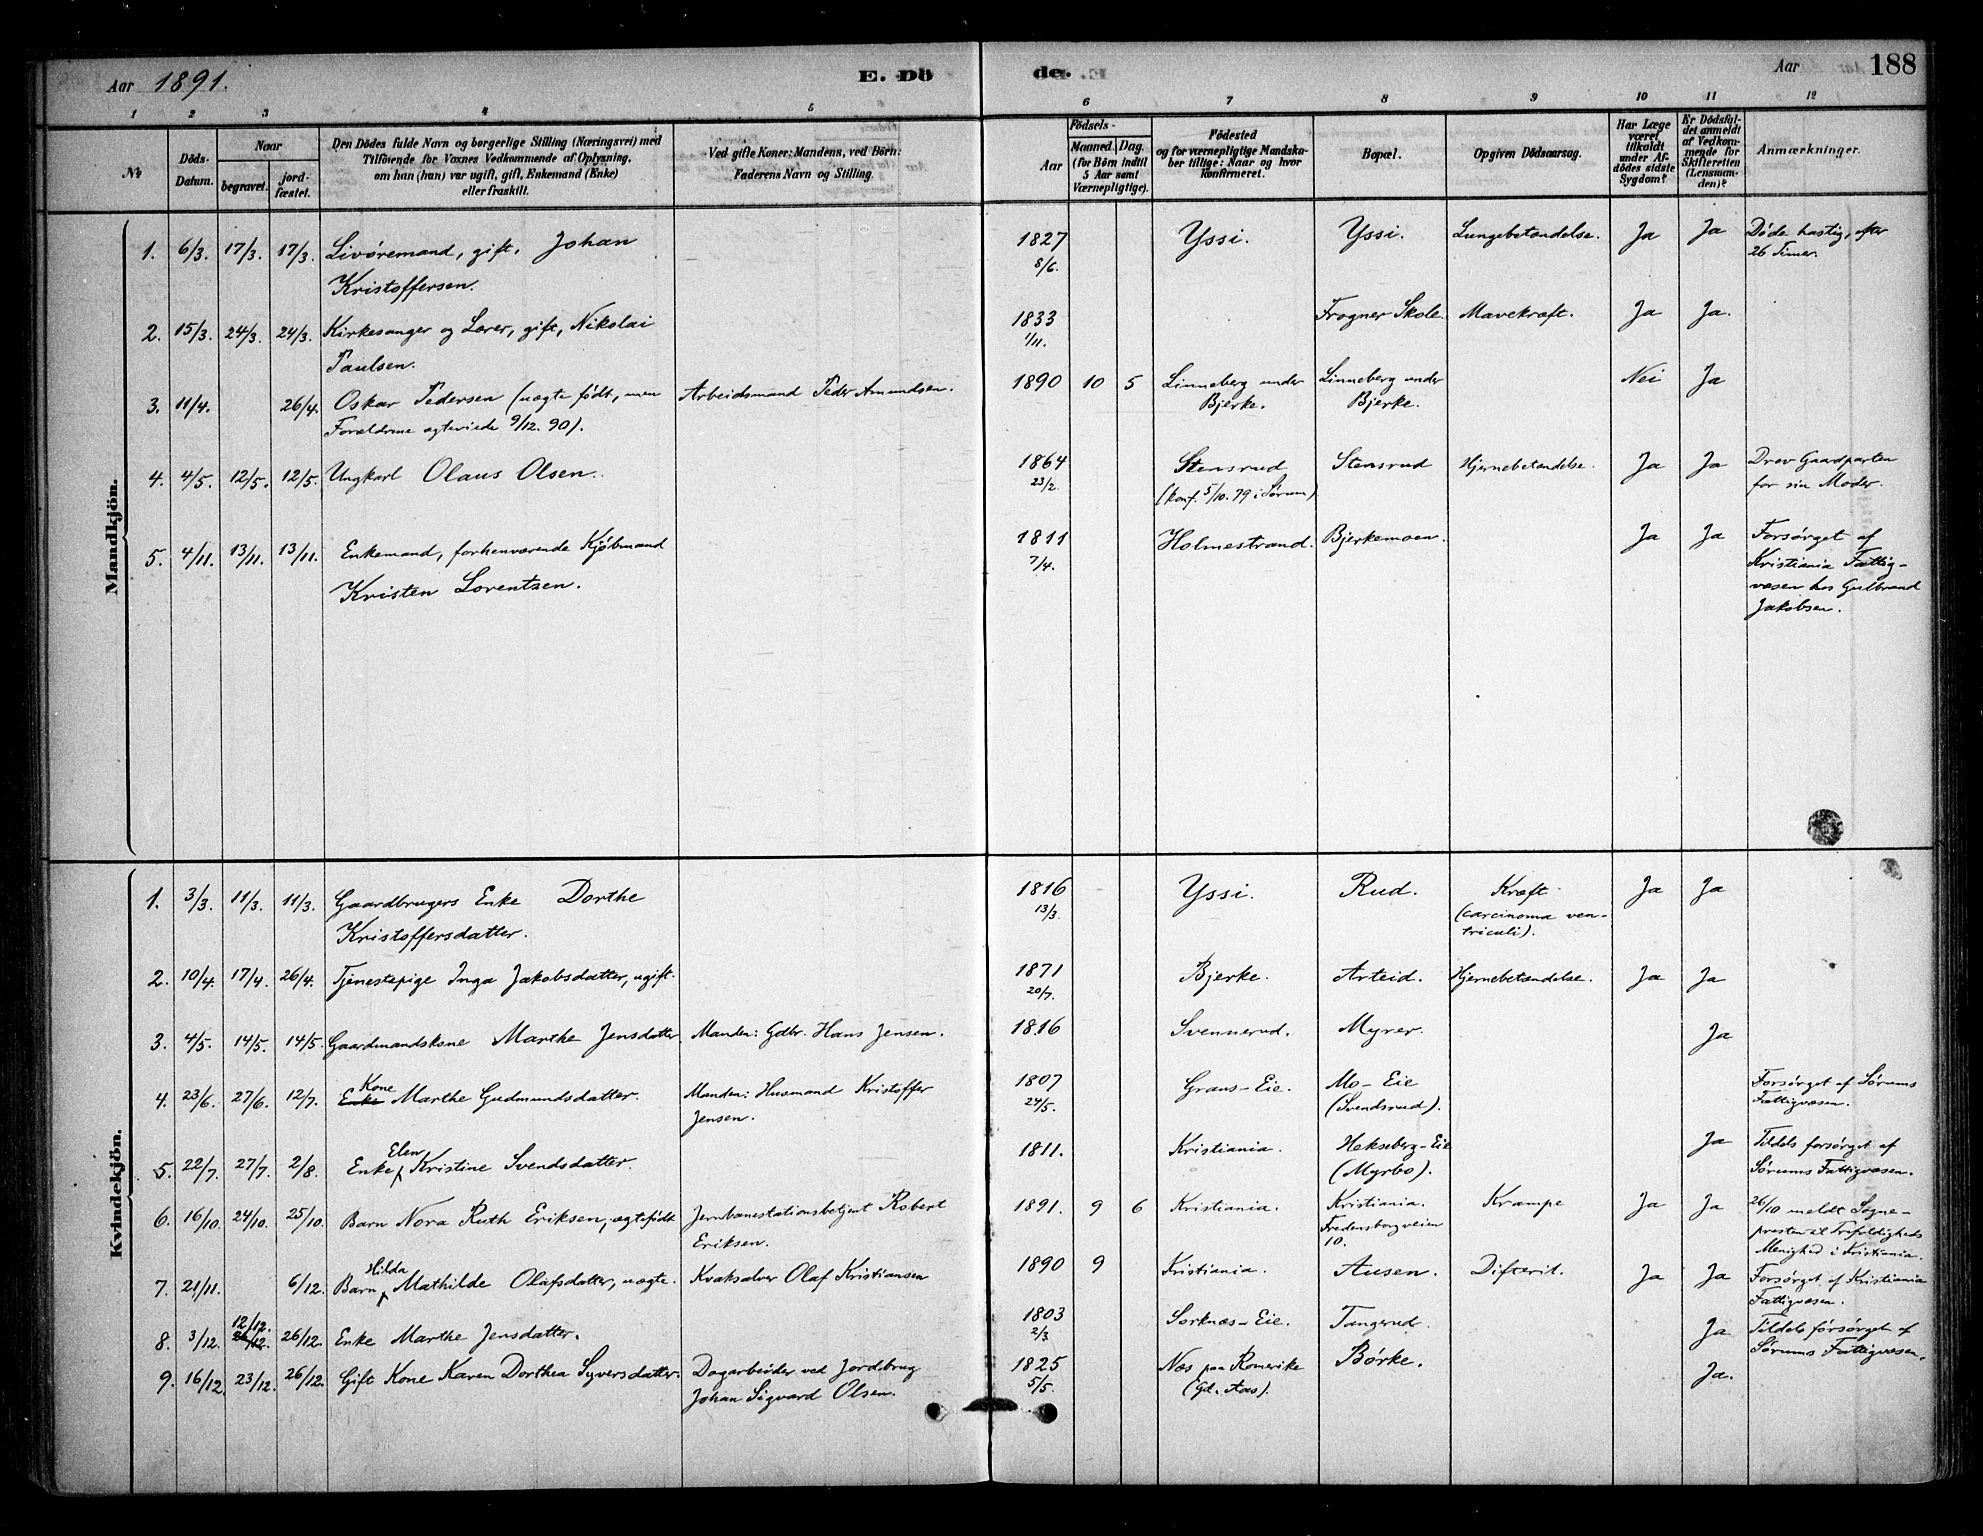 Aar 1891. E. Dö de. Aar 188
1 2 3 4 5 6 7 8 9 10 11 12
№
Döds-
Datum.
Naar
begravet.
jord-
fæstet.
Den Dödes fulde Navn og borgerlige Stilling (Næringsvei) med
Tilföiende for Voxnes Vedkommende af Oplysning,
om han (hun) var ugift, gift, Enkemand (Enke)
eller fraskilt.
Ved gifte Koner: Mandens, ved Börn:
Faderens Navn og Stilling.
Födsels-
Aar
Maaned. Dag.
(for Börn indtil
5 Aar samt
Værnepligtige).
Födested
og for værnepligtige Mandska-
ber tillige: Naar og hvor
konfirmeret.
Bopæl.
Opgiven Dödsaarsag.
Har Læge
været
tilkaldt
under Af-
dödes sidste
Sygdom?
Er Dödsfal-
det anmeldt
af Vedkom-
mende for
Skifteretten
(Lensman-
den)?
Anmærkninger.
Mandkjön.
1. 6/3. 17/3. 17/3. Livøremand, gift, Johan 1827 Yssi. Yssi. Lungebetændelse. Ja Ja Døde hastig, efter
8/6. 26 Timer.
Kristoffersen.
2. 15/3. 24/3. 24/3. Kirkesanger og Lærer, gift, Nikolai 1833 Frogner Skole. Mavekræft. Ja Ja.
1/11.
Paulsen.
3. 11/4. 26/4. Oskar Pedersen (uægte født, men Arbeidsmand Peder Amundsen. 1890 10 5 Linneberg under Linneberg under Nei Ja
Forældrene ægteviede 9/12. 90). Bjerke. Bjerke.
4. 4/5. 12/5. 12/5. Ungkarl Olaus Olsen. 1864 Stensrud Stensrud Hjernebetændelse. Ja Ja Drev Gaardparten
23/2. (konf. 5/10. 79 i Sørum) for sin Moder.
5. 4/11. 13/11. 13/11. Enkemand, forhenværende Kjøbmand 1811 Holmestrand. Bjerkemoen. Ja Ja Forsørget af
7/4. Kristiania Fattig-
Kristen Lorentzen. væsen hos Gulbrand
Jakobsen.
Kvindekjön.
1. 3/3. 11/3. 11/3. Gaardbrugers Enke Dorthe 1816 Yssi. Rud. Kræft Ja Ja
13/3. (carcinoma ven-
Kristoffersdatter. triculi).
2. 10/4. 17/4. 26/4. Tjenestepige Inga Jakobsdatter, ugift. 1871 Bjerke. Arteid. Hjernebetændelse. Ja Ja
20/7.
3. 4/5. 14/5. 14/5. Gaardmandskone Marthe Jensdatter Manden: Gdbr. Hans Jensen. 1816 Svennerud. Myrer. Ja
Kone
4. 23/6. 27/6. 12/7. Enke Marthe Gudmundsdatter. Manden: Husmand Kristoffer 1807 Graus-Eie. Mo-Eie Forsørget af Sørums
Jensen. 24/5. (Svendsrud). Fattigvæsen.
Elen
5. 22/7. 27/7. 2/8. Enke Kristine Svendsdatter. 1811. Kristiania. Hekseberg-Eie Ja Tildels forsørget af
(Myrbo). Sørums Fattigvæsen.
6. 16/10. 24/10. 25/10. Barn Nora Ruth Eriksen, ægtefødt Jernbanestationsbetjent Robert 1891. 9 6 Kristiania. Kristiania. Krampe Ja Ja 26/10 meldt Sogne-
Eriksen. Fredensborgveien presten til Trefoldigheds
10. Menighed i Kristiania.
Hilda
7. 21/11. 6/12. Barn Mathilde Olafsdatter, uægte. Kvaksalver Olaf Kristiansen 1890 9 Kristiania. Ausen. Difterit. Ja Ja Forsørget af Kristiania
Fattigvæsen.
12/12.
8. 3/12. 26/12. 26/12. Enke Marthe Jensdatter. 1803 Sorknæs-Eie. Tangerud. Ja Tildels forsørget af
2/3. Sørums Fattigvæsen.
9. 16/12. 23/12. 26/12. Gift Kone Karen Dorthea Syversdatter. Dagarbeider ved Jordbrug 1825 Næs paa Romerike Børke. Ja.
Johan Sigvard Olsen. 5/5. (Gd. Aas).